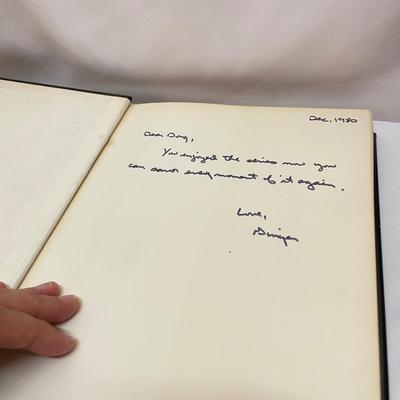 Dec, 1980
Dear Doug,
You enjoyed the series now you
can savor every moment of it again.
Love,
Ginger